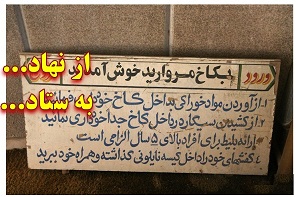 از نهاد...
به ستاد...
ورود بکاخ مروارید خوش آمدید
۱- از آوردن مواد خوراکی بداخل کاخ خودداری فرمائید
۲- از کشیدن سیگار در داخل کاخ جداً خودداری نمائید
ارائه بلیط برای افراد بالای ۵ سال الزامی است
۴- کفشهای خود را داخل کیسه نایلونی گذاشته و همراه خود ببرید